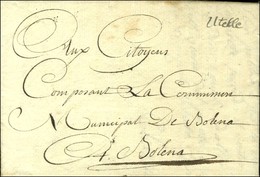 Utelle
Aux Citoyens
Composant La Commune
Municipal De Bolena
A Bolena